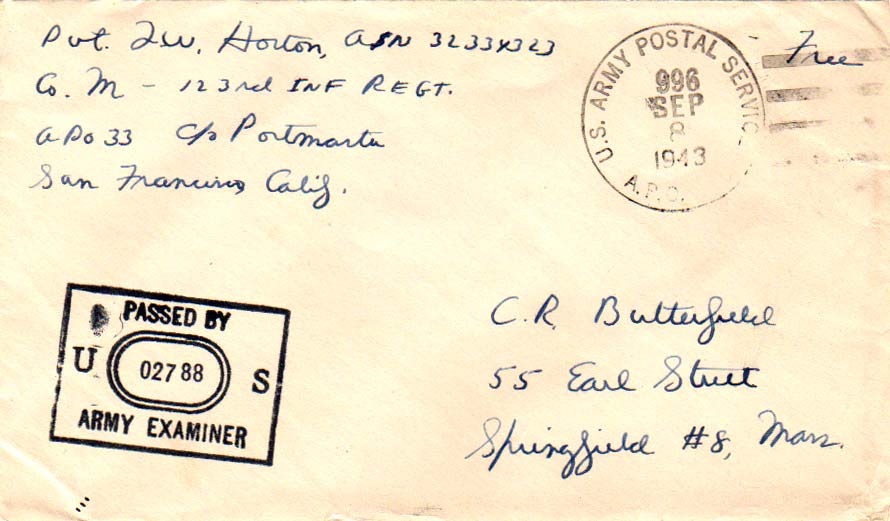 Pvt. J.W. Horton, ASN 32334323
Co. M - 123rd INF REGT.
APO 33 c/o Postmaster
San Francisco, Calif.
Free
U.S. ARMY POSTAL SERVICE
996
SEP
8
1943
A.P.O.
PASSED BY
U 02788 S
ARMY EXAMINER
C.R. Butterfield
55 Earl Street
Springfield #8, Mass.